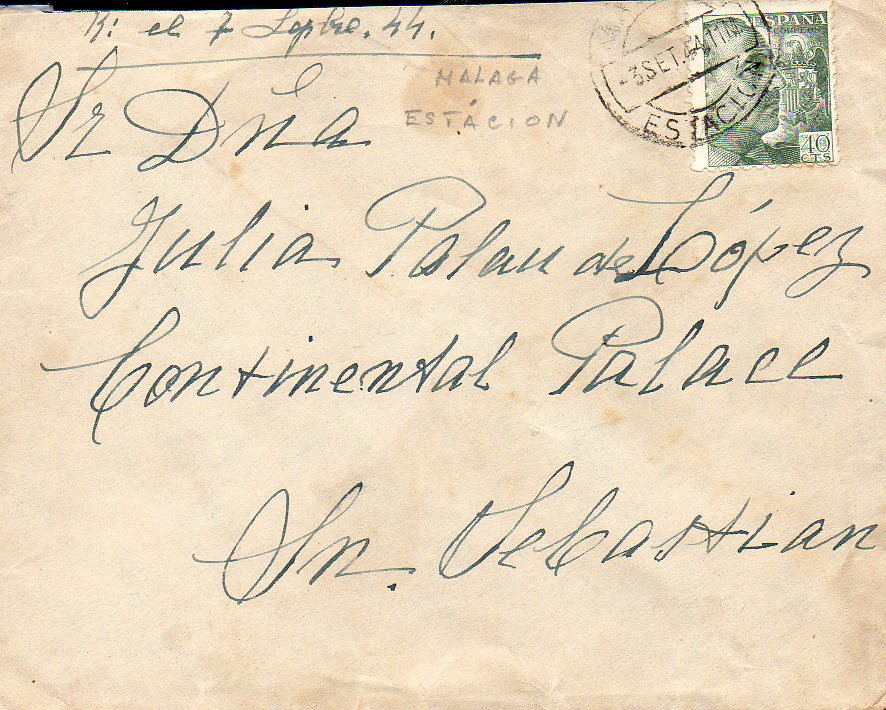 R: el 7 Sepbre. 44.
MALAGA
ESTACION
-3.SET.44.11M
ESTACION
ESPAÑA
CORREOS
40
CTS
Sr Dña
Julia Palau de López
Continental Palace
Sn. Sebastian